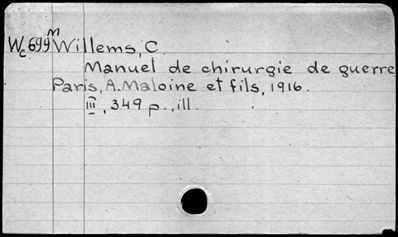 Wc699M Willems, C.
Manuel de chirurgie de guerre
Paris, A. Maloine et fils, 1916.
III, 349 p., ill.